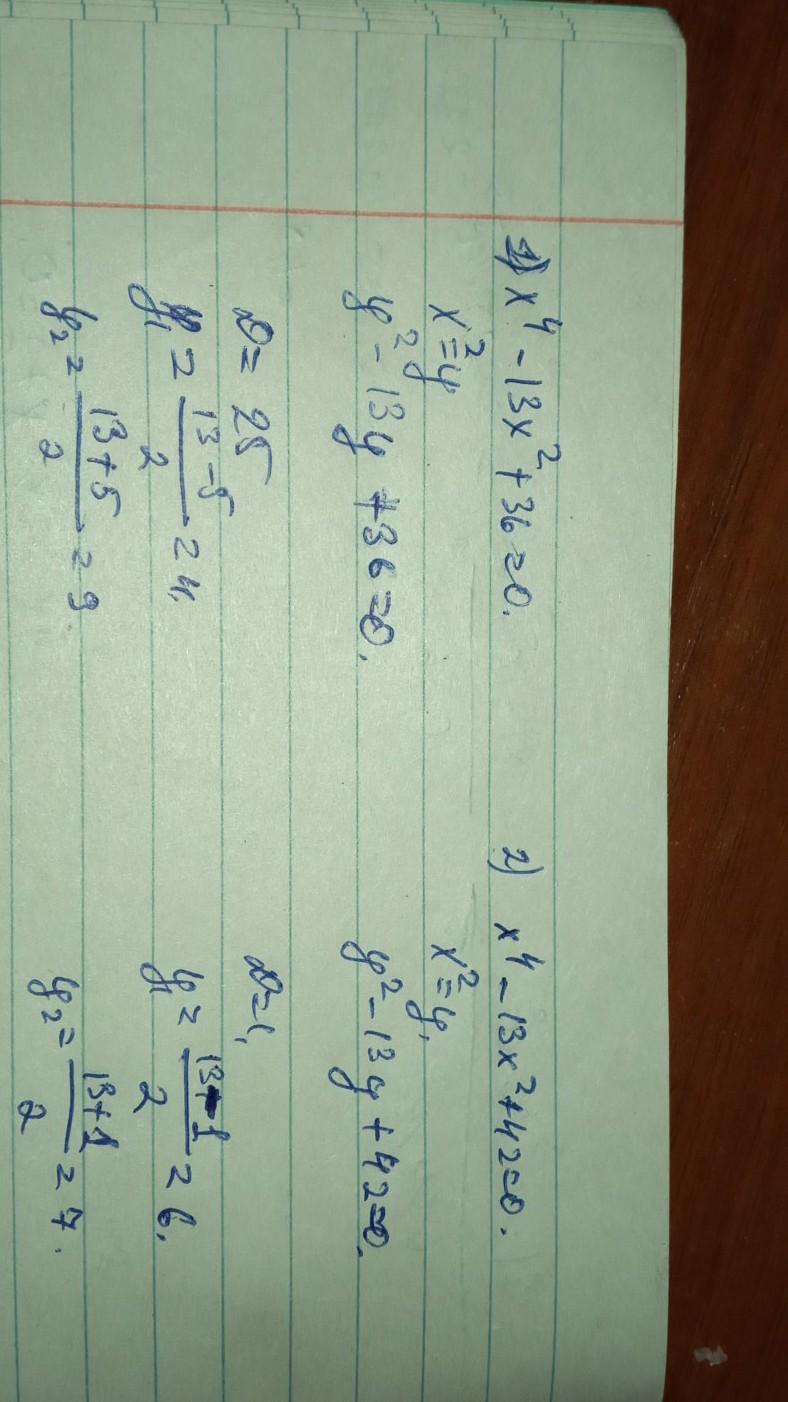 1) x⁴ - 13x² + 36 = 0.
x² = y
y² - 13y + 36 = 0.
D = 25
y₁ = (13 - 5)/2 = 4.
y₂ = (13 + 5)/2 = 9
2) x⁴ - 13x² + 42 = 0.
x² = y.
y² - 13y + 42 = 0.
D = 1,
y₁ = (13 - 1)/2 = 6.
y₂ = (13 + 1)/2 = 7.